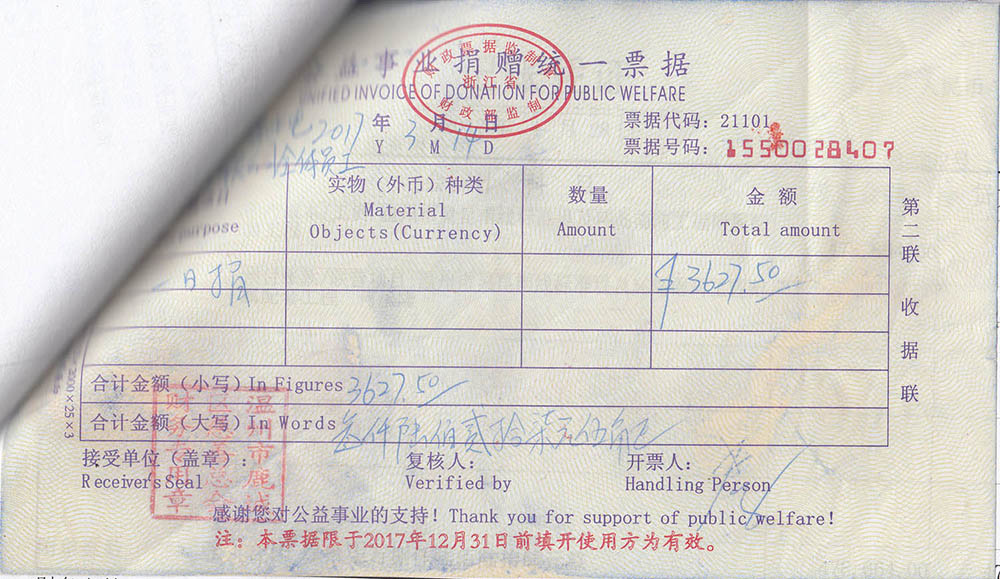 事业捐赠统一票据
UNIFIED INVOICE OF DONATION FOR PUBLIC WELFARE
财政票据监制章
浙江省
财政部监制
2017年3月14日
Y M D
票据代码：21101
票据号码：1550028407
全体员工
实物（外币）种类 数量 金额
purpose Material Objects(Currency) Amount Total amount
一日捐 ¥3627.50
合计金额（小写）In Figures 3627.50
合计金额（大写）In Words 叁仟陆佰贰拾柒元伍角正
接受单位（盖章）： 复核人： 开票人：
Receiver's Seal Verified by Handling Person
温州市鹿城区慈善总会
财务专用章
感谢您对公益事业的支持！Thank you for support of public welfare!
注：本票据限于2017年12月31日前填开使用方为有效。
第二联 收据联
3000×25×3